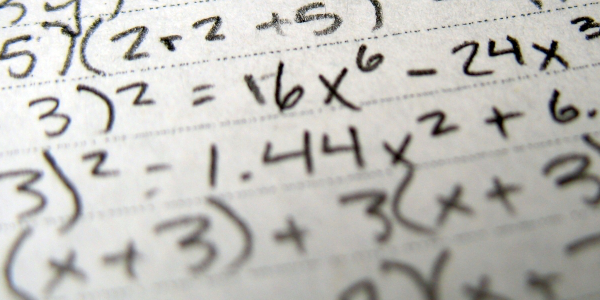 5)(2r² + 5)
3)² = 16x⁶ - 24x³
3)² = 1.44x² + 6.
(x + 3) + 3(x + 3)
)(x +